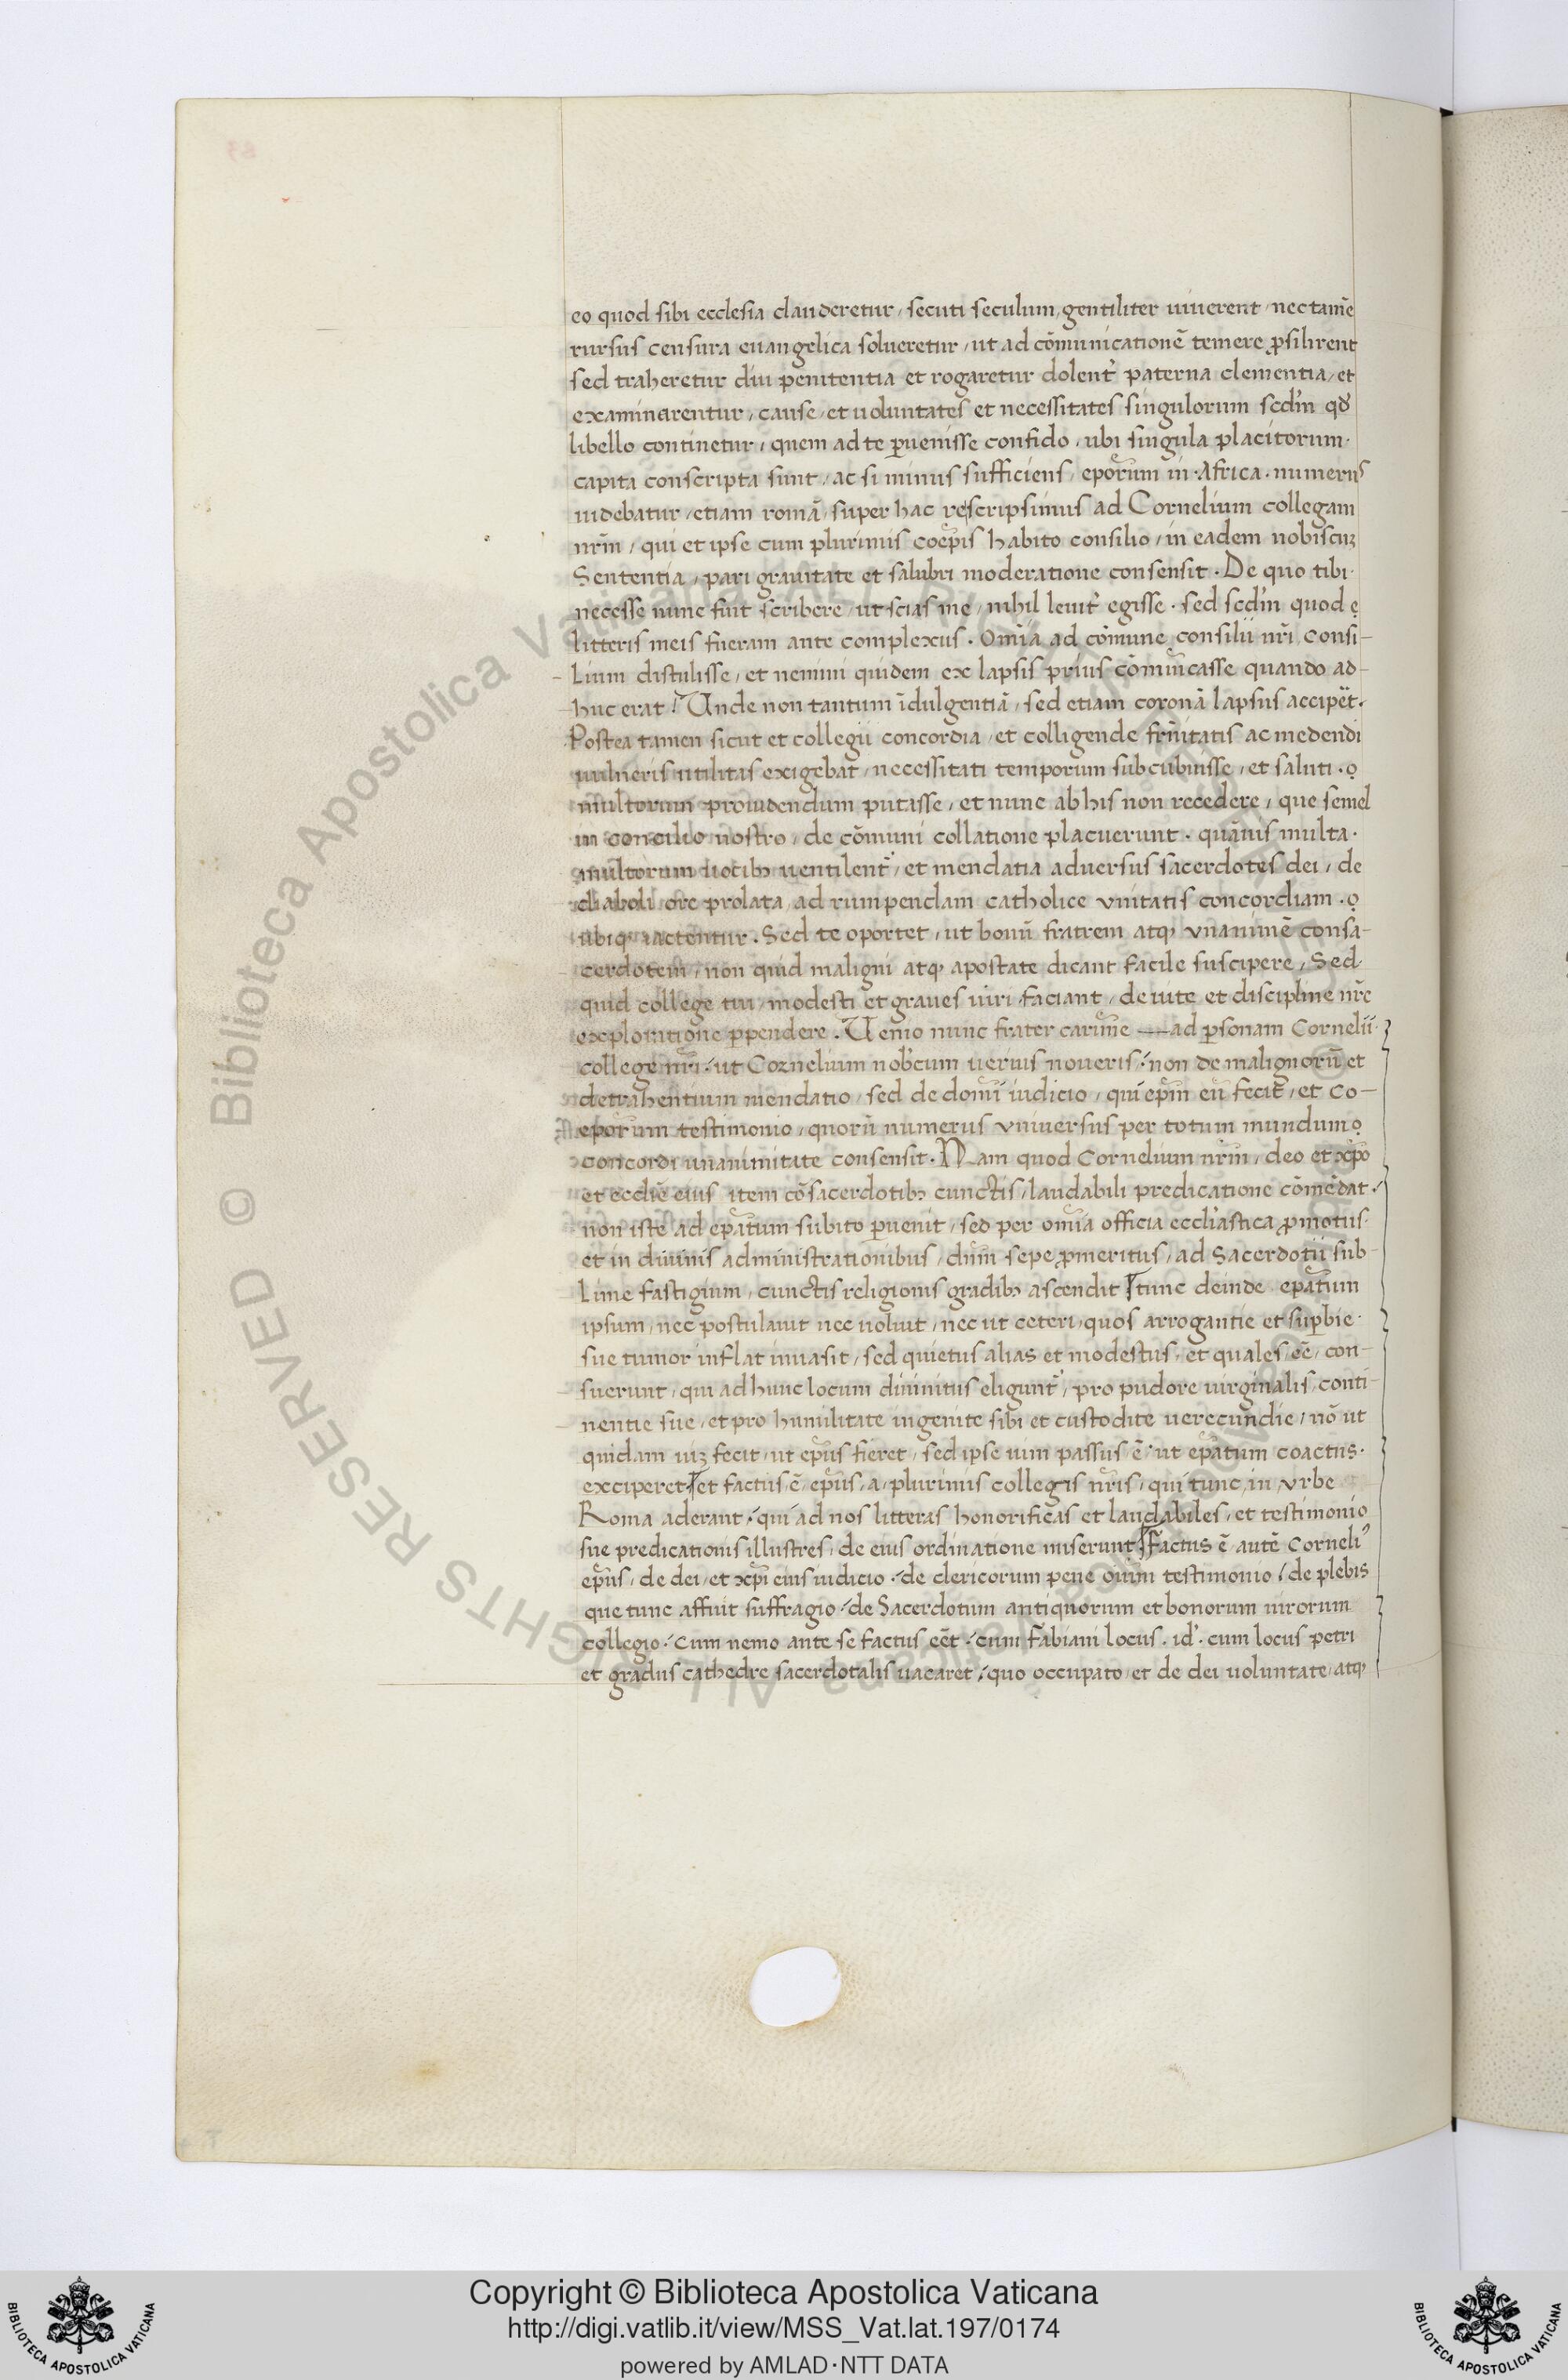 eo quod sibi ecclesia clauderetur, secuti seculum, gentiliter uiuerent, nec tamē
rursus censura euangelica solueretur, ut ad cōmunicationē temere ꝓsilirent
sed traheretur diu penitentia et rogaretur dolent᷑ paterna clementia, et
examinarentur, cause, et uoluntates et necessitates singulorum scd'm qd'
libello continetur, quem ad te ꝑuenisse confido, ubi singula placitorum.
capita conscripta sunt, ac si minus sufficiens, epōrum in Africa. numerus
uidebatur, etiam romā, super hac rescripsimus ad Cornelium collegam
nr̄m, qui et ipse cum plurimis coēpis habito consilio, in eadem nobiscuꝫ
Sententia, pari grauitate et salubri moderatione consensit. De quo tibi.
necesse nunc fuit scribere, ut scias me, nihil leuit᷑ egisse. sed scd'm quod
litteris meis fueram ante complexus. Omīa ad cōmune consilii nr̄i consi-
lium distulisse, et nemini quidem ex lapsis prius cōmuīcasse quando ad-
huc erat! Unde non tantum īdulgentiā, sed etiam coronā lapsus acciꝑet.
Postea tamen sicut et collegii concordia, et colligende fr̄nitatis ac medendi
uulneris utilitas exigebat, necessitati temporum subcubuisse, et saluti.
multorum prouidendum putasse, et nunc ab his non recedere, que semel
in concilio nostro, de cōmuni collatione placuerunt. quāuis multa.
multorum uocibꝫ uentilent᷑, et mendatia aduersus sacerdotes dei, de
diaboli ore prolata, ad rumpendam catholice vnitatis concordiam.
ubiqꝫ iactentur. Sed te oportet, ut bonū fratrem atqꝫ vnanimē consa-
cerdotem, non quid maligni atqꝫ apostate dicant facile suscipere, Sed.
quid college tui, modesti et graues uiri faciant, de uite et discipline nr̄e
exploratione ꝑpendere. Uenio nunc frater carīme — ad ꝑsonam Cornelii.
college nr̄i, ut Cornelium nob'cum uerius noueris, non de malignorū et
detrahentium mendatio, sed de domī iudicio, qui ep̄m eū fecit, et co-
epōrum testimonio, quorū numerus vniuersus per totum mundum
concordi unanimitate consensit. Nam quod Cornelium nr̄m, deo et xp̄o
et eccl'ie eius item cōsacerdotibꝫ cunctis, laudabili predicatione cōmēdat.
non iste ad epātum subito ꝑuenit, sed per omīa officia eccl'iastica ꝓmotus.
et in diuinis administrationibus, dn̄m sepe ꝓmeritus, ad Sacerdotii sub-
lime fastigium, cunctis religionis gradibꝫ ascendit tunc deinde epātum
ipsum, nec postulauit nec uoluit, nec ut ceteri, quos arrogantie et suꝑbie.
sue tumor inflat inuasit, sed quietus alias et modestus, et quales eē, con-
suerunt, qui ad hunc locum diuinitus eligunt᷑, pro pudore uirginalis, conti-
nentie sue, et pro humilitate ingenite sibi et custodite uerecundie, nō ut
quidam uiꝫ fecit, ut ep̄us fieret, sed ipse uim passus ē, ut epātum coactus.
exciperet et factus, ē, ep̄us, a, plurimis collegis nr̄is, qui tunc, in vrbe
Roma aderant, qui ad nos litteras honorificas et laudabiles, et testimonio
sue predicationis illustres, de eius ordinatione miserunt Factus ē autē Corneliꝰ
ep̄us, de dei, et xp̄i eius iudicio, de clericorum pene omīm testimonio, de plebis
que tunc affuit suffragio, de Sacerdotum antiquorum et bonorum uirorum
collegio, Cum nemo ante se factus eēt, cum Fabiani locus. id'. cum locus petri
et gradus cathedre sacerdotalis uacaret, quo occupato, et de dei uoluntate, atqꝫ
© Biblioteca Apostolica Vaticana ALL RIGHTS RESERVED
Copyright © Biblioteca Apostolica Vaticana
http://digi.vatlib.it/view/MSS_Vat.lat.197/0174
powered by AMLAD·NTT DATA
BIBLIOTECA APOSTOLICA VATICANA
BIBLIOTECA APOSTOLICA VATICANA